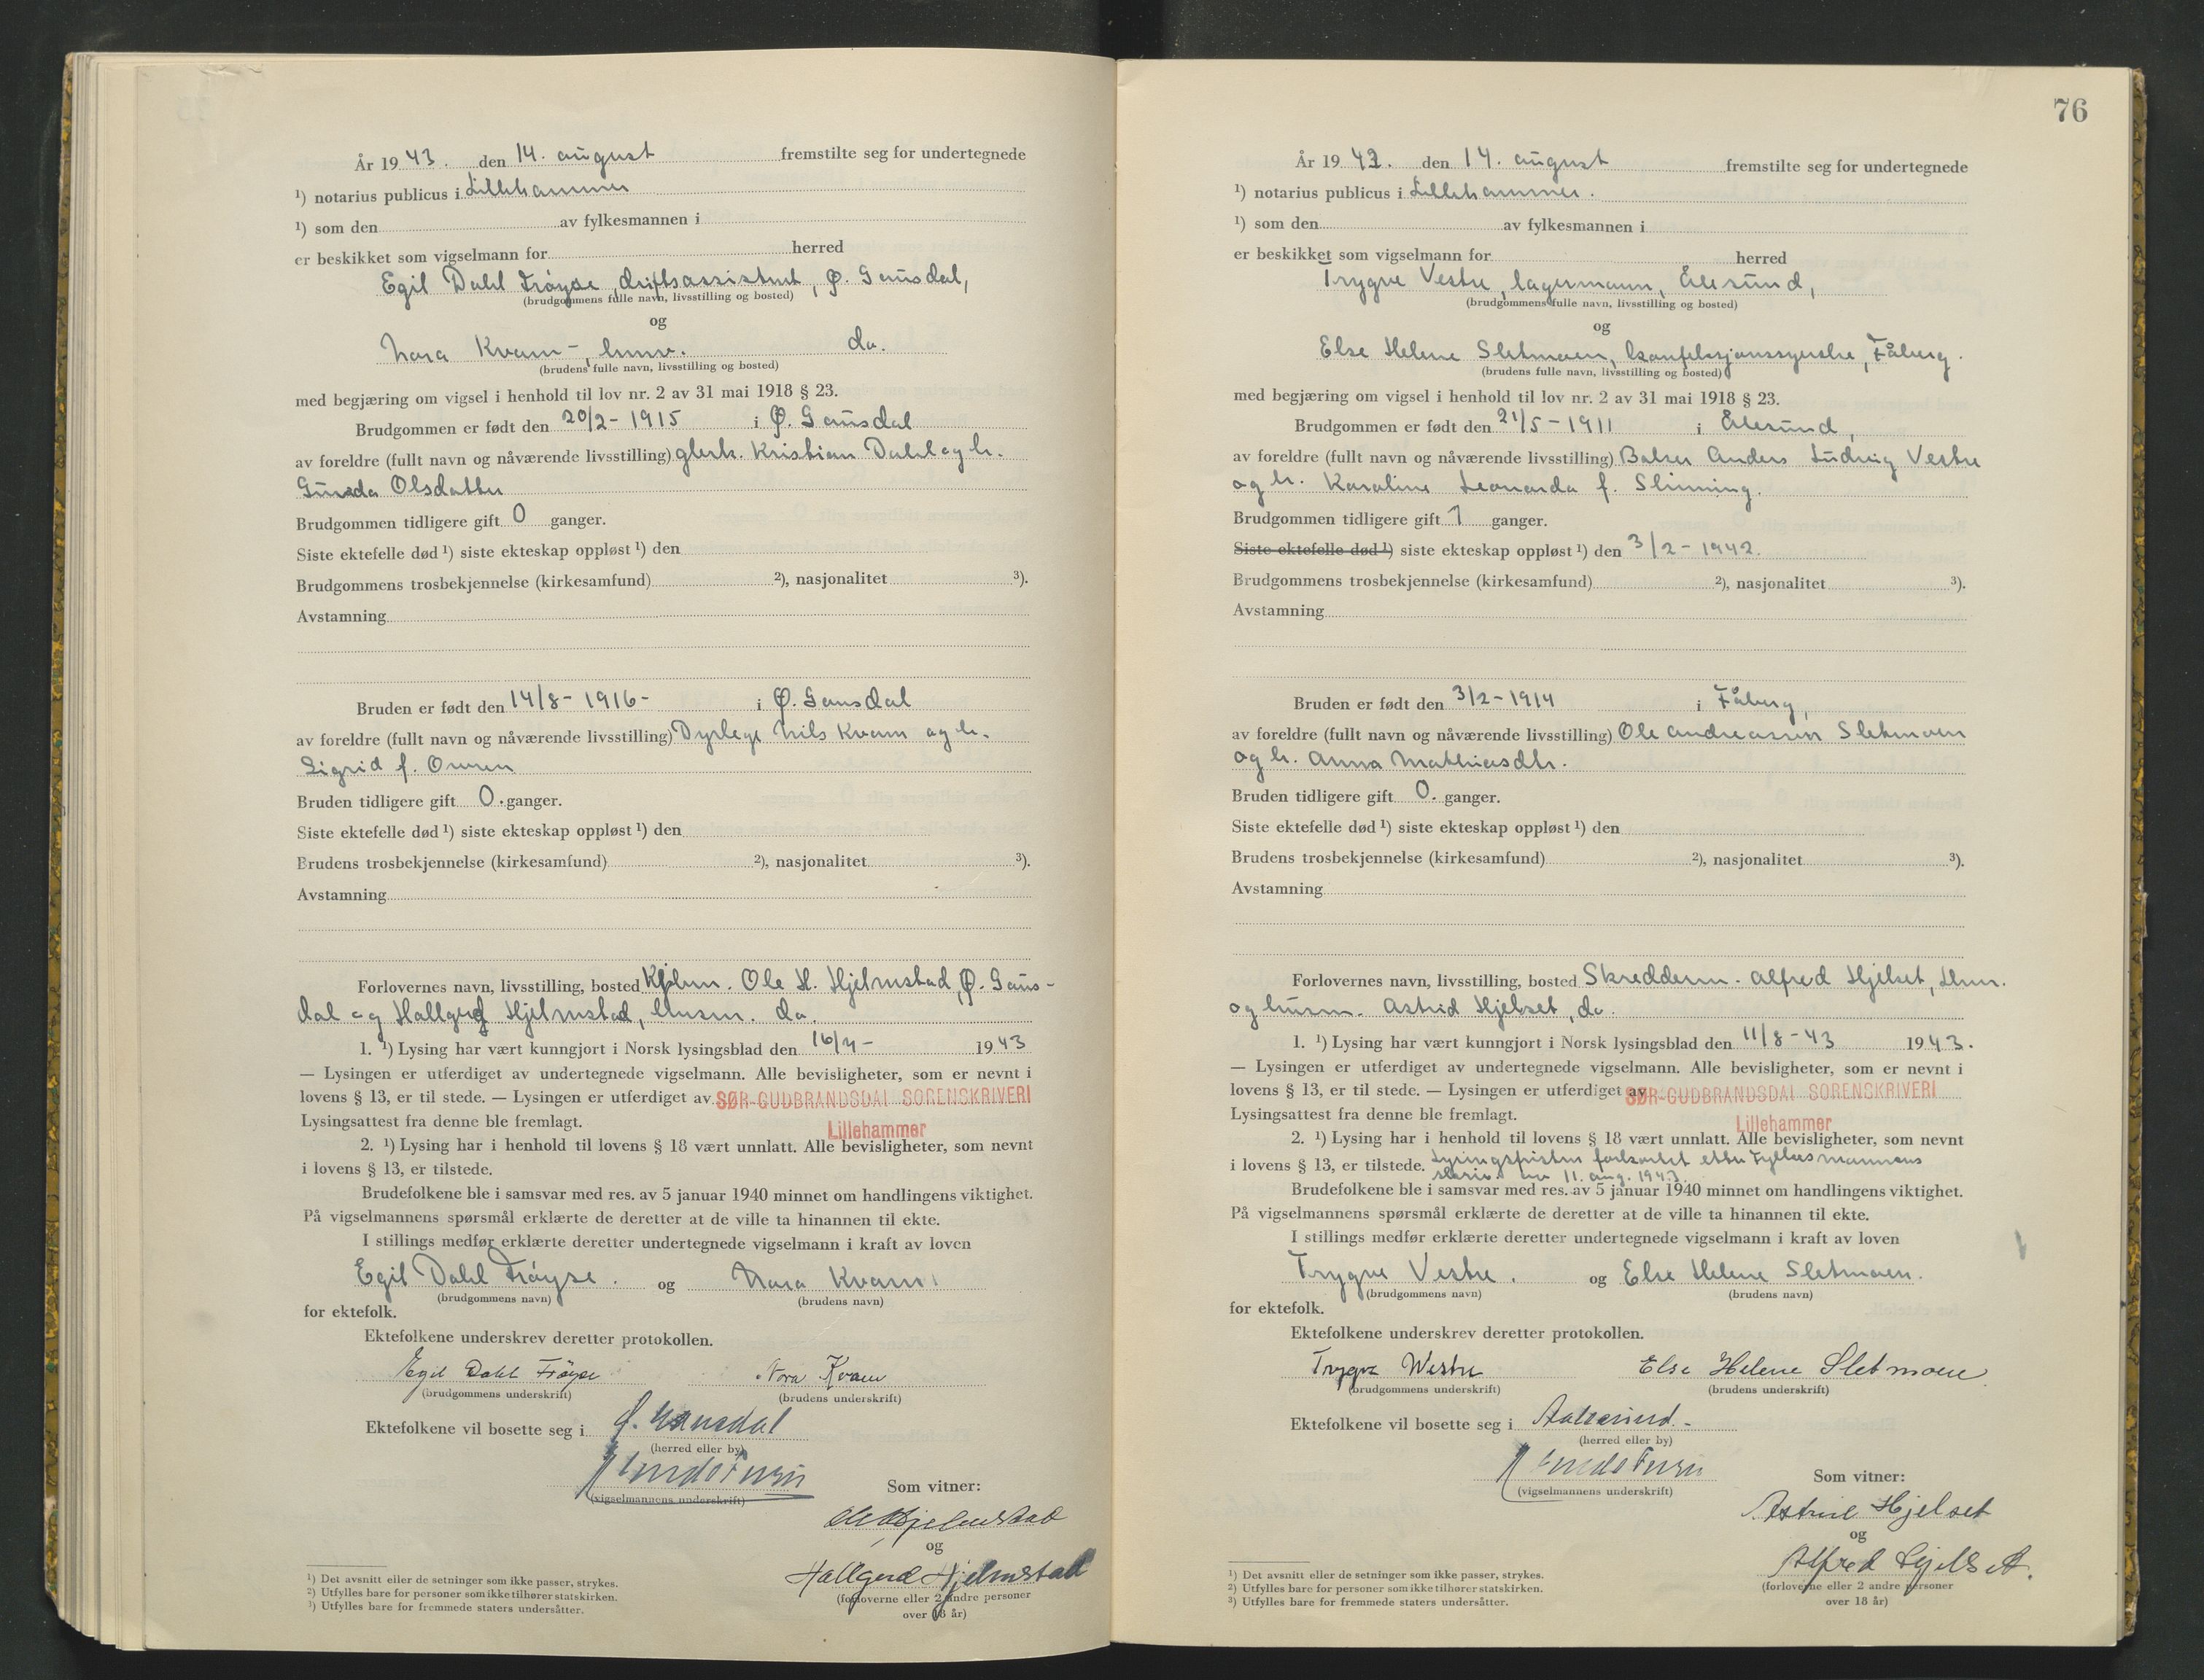 År 1943. den 14. august fremstilte seg for undertegnede
¹) notarius publicus i Lillehammer
¹) som den av fylkesmannen i
er beskikket som vigselmann for herred
Egil Dahl Frøyse, driftsassistent, Ø. Gausdal,
(brudgommens fulle navn, livsstilling og bosted)
og
Nora Kvam -, husv. do.
(brudens fulle navn, livsstilling og bosted)
med begjæring om vigsel i henhold til lov nr. 2 av 31 mai 1918 § 23.
Brudgommen er født den 20/2 - 1915 i Ø. Gausdal
av foreldre (fullt navn og nåværende livsstilling) Kristian Dahl og h.
Olsdatter
Brudgommen tidligere gift 0 ganger.
Siste ektefelle død ¹) siste ekteskap oppløst ¹) den
Brudgommens trosbekjennelse (kirkesamfund) ²), nasjonalitet ³).
Avstamning
Bruden er født den 14/8 - 1916 - i Ø. Gausdal
av foreldre (fullt navn og nåværende livsstilling) Dyrlege Nils Kvam og h.
Sigrid f. Owren
Bruden tidligere gift 0. ganger.
Siste ektefelle død ¹) siste ekteskap oppløst ¹) den
Brudens trosbekjennelse (kirkesamfund) ²), nasjonalitet ³).
Avstamning
Forlovernes navn, livsstilling, bosted Kjøbm. Ole H. Hjelmstad, Ø. Gaus-
dal og Hallgerd Hjelmstad, husm. do.
1. ¹) Lysing har vært kunngjort i Norsk lysingsblad den 16/4 - 1943
— Lysingen er utferdiget av undertegnede vigselmann. Alle bevisligheter, som er nevnt i
lovens § 13, er til stede. — Lysingen er utferdiget av SØR-GUDBRANDSDAL SORENSKRIVERI
Lysingsattest fra denne ble fremlagt.
Lillehammer
2. ¹) Lysing har i henhold til lovens § 18 vært unnlatt. Alle bevisligheter, som nevnt
i lovens § 13, er tilstede.
Brudefolkene ble i samsvar med res. av 5 januar 1940 minnet om handlingens viktighet.
På vigselmannens spørsmål erklærte de deretter at de ville ta hinannen til ekte.
I stillings medfør erklærte deretter undertegnede vigselmann i kraft av loven
Egil Dahl Frøyse. og Nora Kvam
(brudgommens navn) (brudens navn)
for ektefolk.
Ektefolkene underskrev deretter protokollen.
Egil Dahl Fröyse Nora Kvam
(brudgommens underskrift) (brudens underskrift)
Ektefolkene vil bosette seg i Ø. Gausdal
(herred eller by)
(vigselmannens underskrift)
Som vitner:
Hjelmstad
og
Hallgerd Hjelmstad
(forloverne eller 2 andre personer
over 18 år)
¹) Det avsnitt eller de setninger som ikke passer, strykes.
²) Utfylles bare for personer som ikke tilhører statskirken.
³) Utfylles bare for fremmede staters undersåtter.
76
År 1943. den 14. august fremstilte seg for undertegnede
¹) notarius publicus i Lillehammer.
¹) som den av fylkesmannen i
er beskikket som vigselmann for herred
Trygve Vestre, lagermann, Ålesund,
(brudgommens fulle navn, livsstilling og bosted)
og
Else Helene Sletmoen, konfeksjonssyerske, Fåberg.
(brudens fulle navn, livsstilling og bosted)
med begjæring om vigsel i henhold til lov nr. 2 av 31 mai 1918 § 23.
Brudgommen er født den 21/5 - 1911 i Ålesund,
av foreldre (fullt navn og nåværende livsstilling) Anders Ludvig Vestre
og h. Karoline Leonarda f. Slinning.
Brudgommen tidligere gift 1 ganger.
Siste ektefelle død ¹) siste ekteskap oppløst ¹) den 3/2 - 1942.
Brudgommens trosbekjennelse (kirkesamfund) ²), nasjonalitet ³).
Avstamning
Bruden er født den 3/2 - 1914 i Fåberg,
av foreldre (fullt navn og nåværende livsstilling) Ole Andreassen Sletmoen
og h. Anna Mathiasdtr.
Bruden tidligere gift 0. ganger.
Siste ektefelle død ¹) siste ekteskap oppløst ¹) den
Brudens trosbekjennelse (kirkesamfund) ²), nasjonalitet ³).
Avstamning
Forlovernes navn, livsstilling, bosted Skredderm. Alfred Hjelset, Lhmr.
og husm. Astrid Hjelset, do.
1. ¹) Lysing har vært kunngjort i Norsk lysingsblad den 11/8 - 43 1943.
— Lysingen er utferdiget av undertegnede vigselmann. Alle bevisligheter, som er nevnt i
lovens § 13, er til stede. — Lysingen er utferdiget av SØR-GUDBRANDSDAL SORENSKRIVERI
Lysingsattest fra denne ble fremlagt.
Lillehammer
2. ¹) Lysing har i henhold til lovens § 18 vært unnlatt. Alle bevisligheter, som nevnt
i lovens § 13, er tilstede. Lysingsfristen forkortet etter Fylkesmannens
skriv. av 11. aug. 1943.
Brudefolkene ble i samsvar med res. av 5 januar 1940 minnet om handlingens viktighet.
På vigselmannens spørsmål erklærte de deretter at de ville ta hinannen til ekte.
I stillings medfør erklærte deretter undertegnede vigselmann i kraft av loven
Trygve Vestre. og Else Helene Sletmoen.
(brudgommens navn) (brudens navn)
for ektefolk.
Ektefolkene underskrev deretter protokollen.
Trygve Westre Else Helene Sletmoen
(brudgommens underskrift) (brudens underskrift)
Ektefolkene vil bosette seg i Aalesund.-
(herred eller by)
(vigselmannens underskrift)
Som vitner:
Astrid Hjelset
og
Alfred Hjelset.
(forloverne eller 2 andre personer
over 18 år)
¹) Det avsnitt eller de setninger som ikke passer, strykes.
²) Utfylles bare for personer som ikke tilhører statskirken.
³) Utfylles bare for fremmede staters undersåtter.